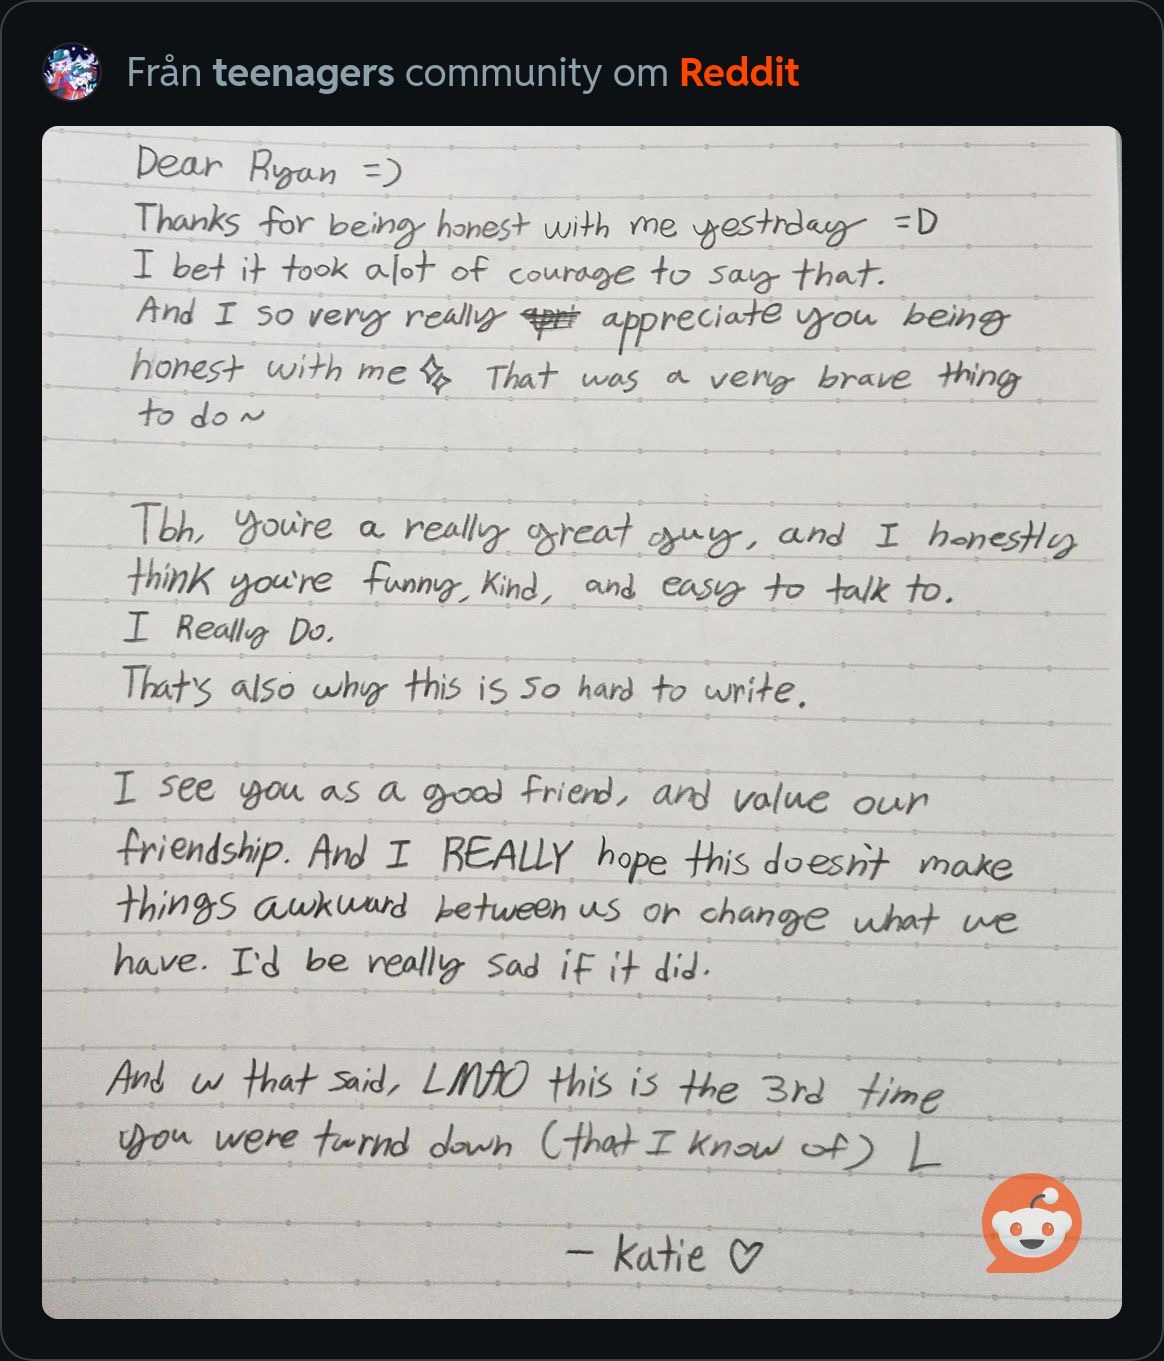 Från teenagers community om Reddit
Dear Ryan =)
Thanks for being honest with me yestrday =D
I bet it took alot of courage to say that.
And I so very really appreciate you being
honest with me That was a very brave thing
to do ~
Tbh, you're a really great guy, and I honestly
think you're funny, kind, and easy to talk to.
I Really Do.
That's also why this is so hard to write.
I see you as a good friend, and value our
friendship. And I REALLY hope this doesn't make
things awkward between us or change what we
have. I'd be really sad if it did.
And w that said, LMAO this is the 3rd time
you were turnd down (that I know of) L
– Katie ♡